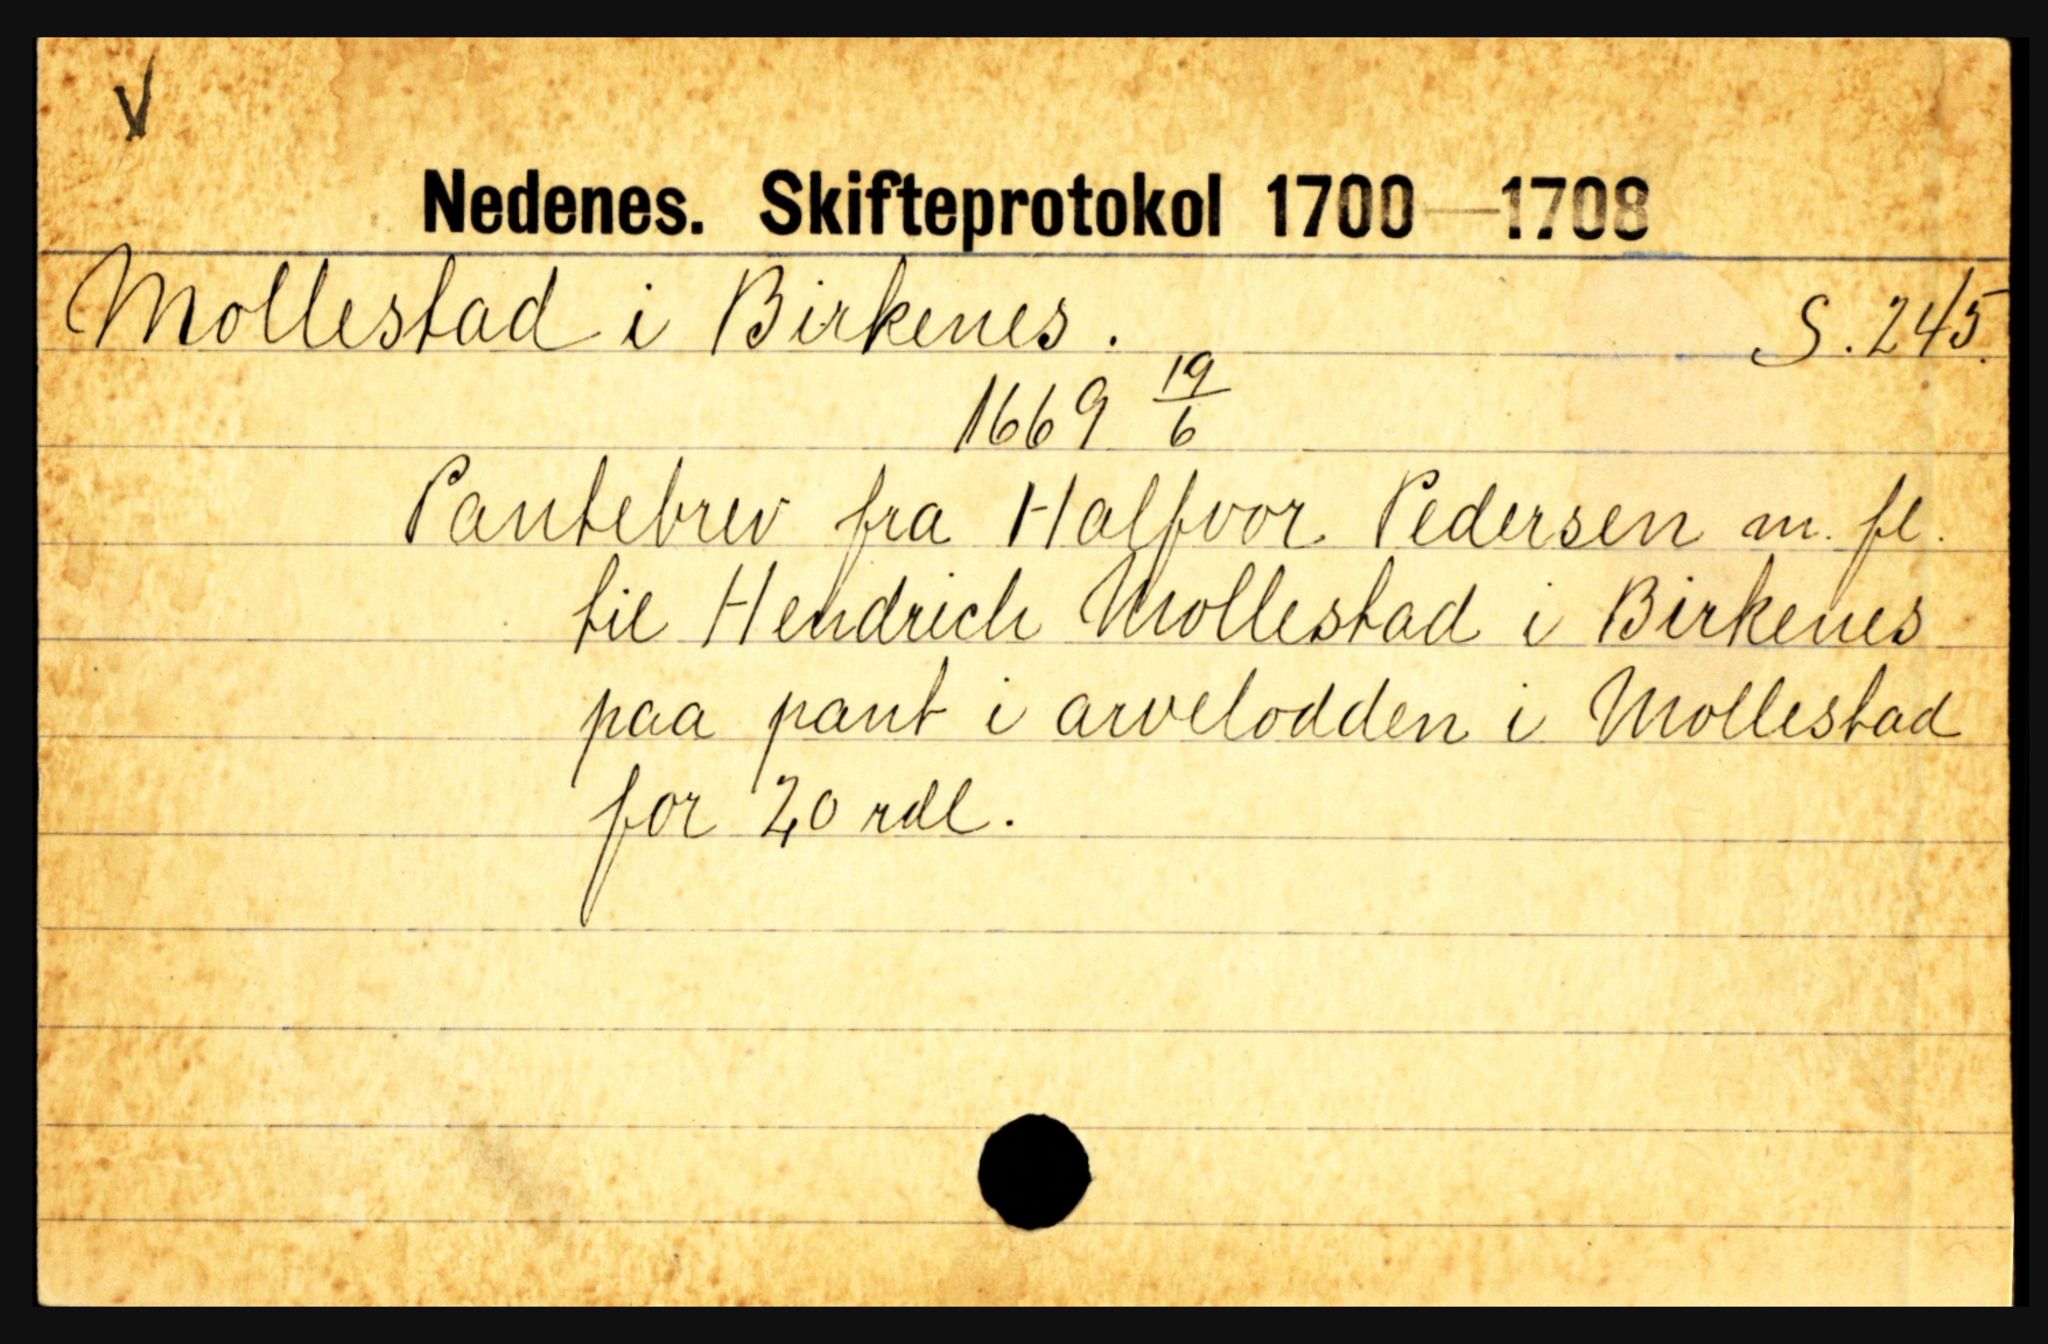 V
Nedenes. Skifteprotokol 1700—1708
Mollestad i Birkenes. S. 245.
1669 19/6
Pantebrev fra Halfvor Pedersen m. fl.
til Hendrich Mollestad i Birkenes
paa pant i arvelodden i Mollestad
for 20 rdl.